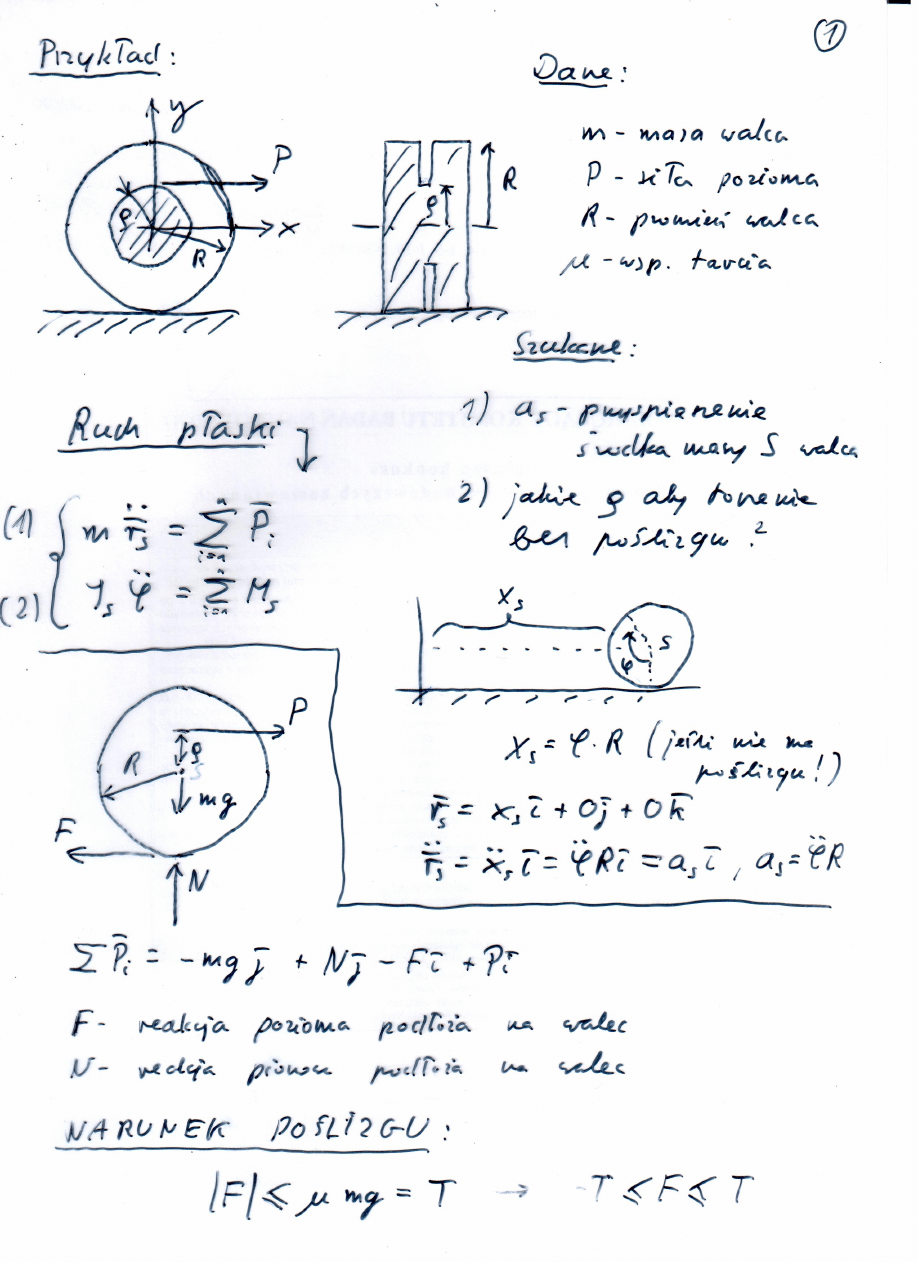 1
Przykład:
Dane:
y
P
x
ρ
R
R
ρ
m - masa walca
P - siła pozioma
R - promień walca
μ - wsp. tarcia
Szukane:
1) a_s - przyspieszenie
środka masy S walca
2) jakie ρ aby toczenie
bez poślizgu?
Ruch płaski
(1) m r̈_s = Σ P̄_i
(2) J_s φ̈ = Σ M_s
x_s
S
φ
x_s = φ · R (jeśli nie ma
poślizgu!)
r̄_s = x_s ī + 0j̄ + 0k̄
r̈_s = ẍ_s ī = φ̈Rī = a_s ī, a_s = φ̈R
P
ρ
R
S
mg
F
N
ΣP̄_i = -mg j̄ + Nj̄ - Fī + Pī
F - reakcja pozioma podłoża na walec
N - reakcja pionowa podłoża na walec
WARUNEK POŚLIZGU:
|F| ≤ μ mg = T → -T ≤ F ≤ T